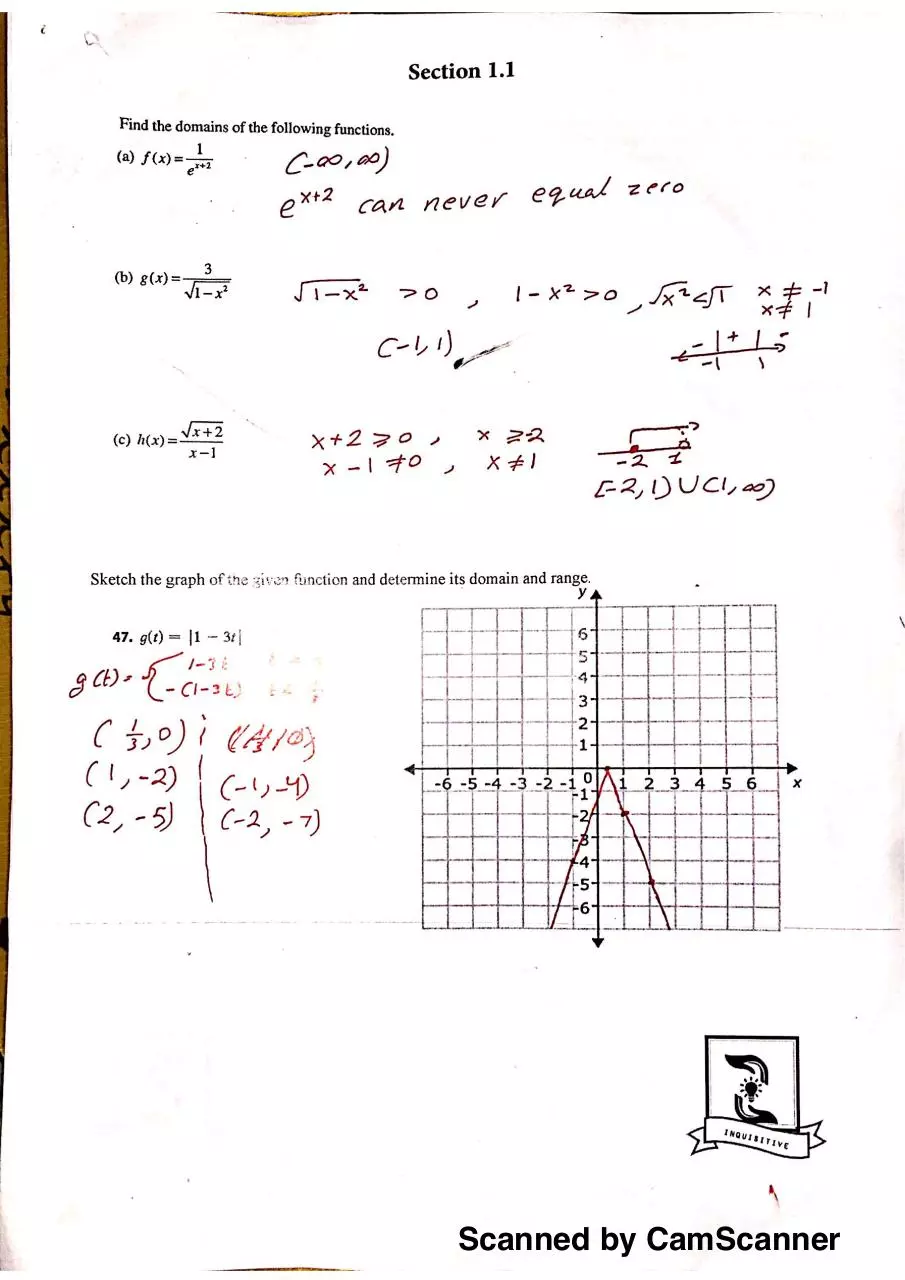 Section 1.1
Find the domains of the following functions.
(a) f(x) = 1/e^(x+2)
(-∞, ∞)
e^(x+2) can never equal zero
(b) g(x) = 3/√(1-x²)
√(1-x²) > 0 , 1 - x² > 0 , √x² < √1 x ≠ -1
x ≠ 1
(-1, 1)
- | + | -
-1 1
(c) h(x) = √(x+2)/(x-1)
x + 2 ≥ 0 , x ≥ -2
x - 1 ≠ 0 , x ≠ 1
-2 1
[-2, 1) ∪ (1, ∞)
Sketch the graph of the given function and determine its domain and range.
47. g(t) = |1 - 3t|
g(t) = { 1-3t
-(1-3t)
(1/3, 0)
(1, -2) (-1, -4)
(2, -5) (-2, -7)
y
6
5
4
3
2
1
-6 -5 -4 -3 -2 -1 0 1 2 3 4 5 6 x
-1
-2
-3
-4
-5
-6
INQUISITIVE
Scanned by CamScanner